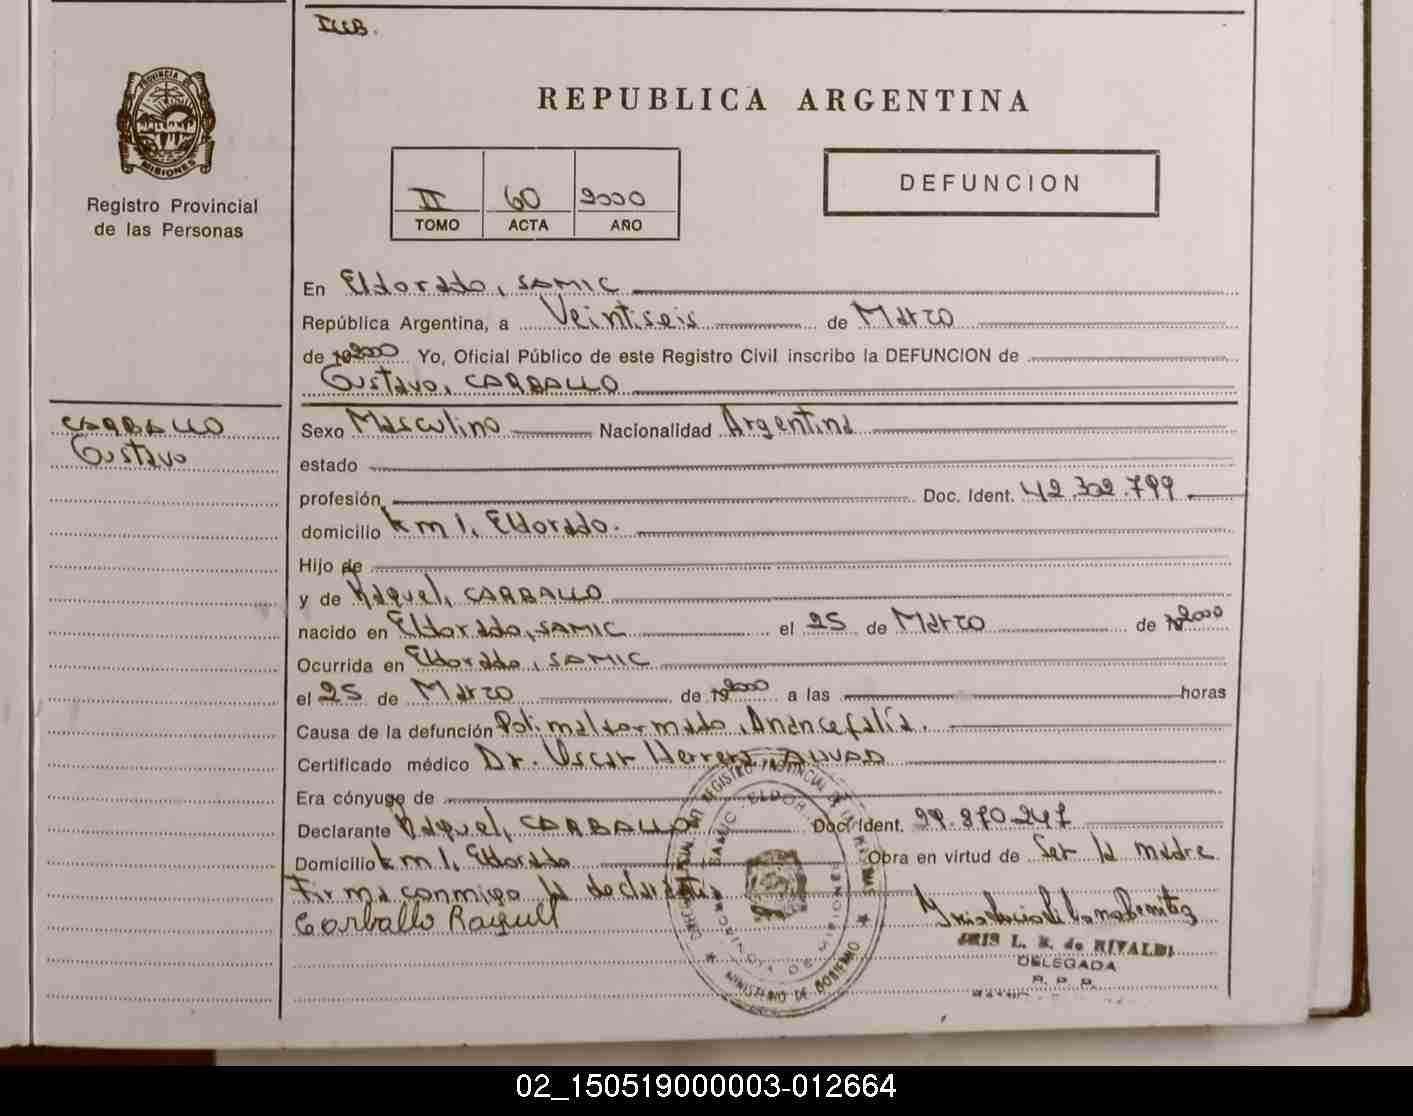 IUB.
PROVINCIA DE
MISIONES
Registro Provincial
de las Personas
REPUBLICA ARGENTINA
II 60 2000
TOMO ACTA AÑO
DEFUNCION
En Eldorado, SAMIC
República Argentina, a Veintiseis de Marzo
de 2000 Yo, Oficial Público de este Registro Civil inscribo la DEFUNCION de
Gustavo, CARBALLO
CARBALLO
Gustavo
Sexo Masculino Nacionalidad Argentina
estado
profesión Doc. Ident. 42.302.799
domicilio km 1, Eldorado.
Hijo de
y de Raquel, CARBALLO
nacido en Eldorado, SAMIC el 25 de Marzo de 2000
Ocurrida en Eldorado, SAMIC
el 25 de Marzo de 2000 a las horas
Causa de la defunción Polimalformado, Anancefalía.
Certificado médico Dr. Oscar Herrera
Era cónyuge de
Declarante Raquel, CARBALLO Doc. Ident. 29.870.247
Domicilio km 1, Eldorado Obra en virtud de Ser la madre
Firma conmigo la declarante
Carballo Raquel
IRIS L. B. de RIVALDI
DELEGADA
R. P. P.
REGISTRO PROVINCIAL DE LAS
SAMIC ELDOR
MINISTERIO DE GOBIERNO
02_150519000003-012664